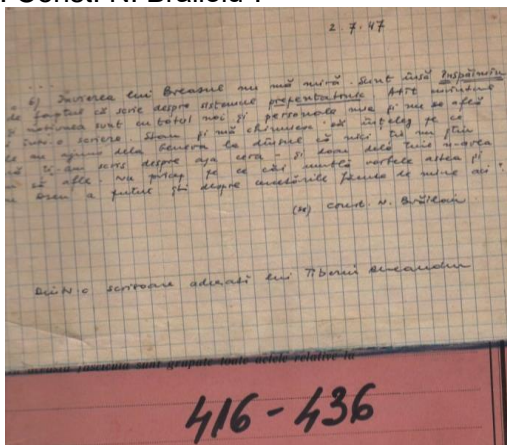 : Const. N. Brăiloiu :
2.7.47
6) Învierea lui Breazul nu mă miră. Sunt însă înspăimîn
de faptul că scrie despre sistemul prepentatonic. Atît
și noțiunea sunt cu totul noi și personale mie și nu se află
într-o scriere. Stau și mă chinuesc să înțeleg pe ce
au ajuns dela benson la dînsul că nici tu nu știu
să-ți-am scris despre așa ceva - și doar dela tine n-area
să afle. Nu pricep pe ce căi umblă vorbele astea și
a putut ști despre cercetările făcute de mine aci.
(ss) Const. N. Brăiloiu
Dintr-o scrisoare adresată lui Tiberiu Alexandru
sunt grupate toate actele relative la
416-436